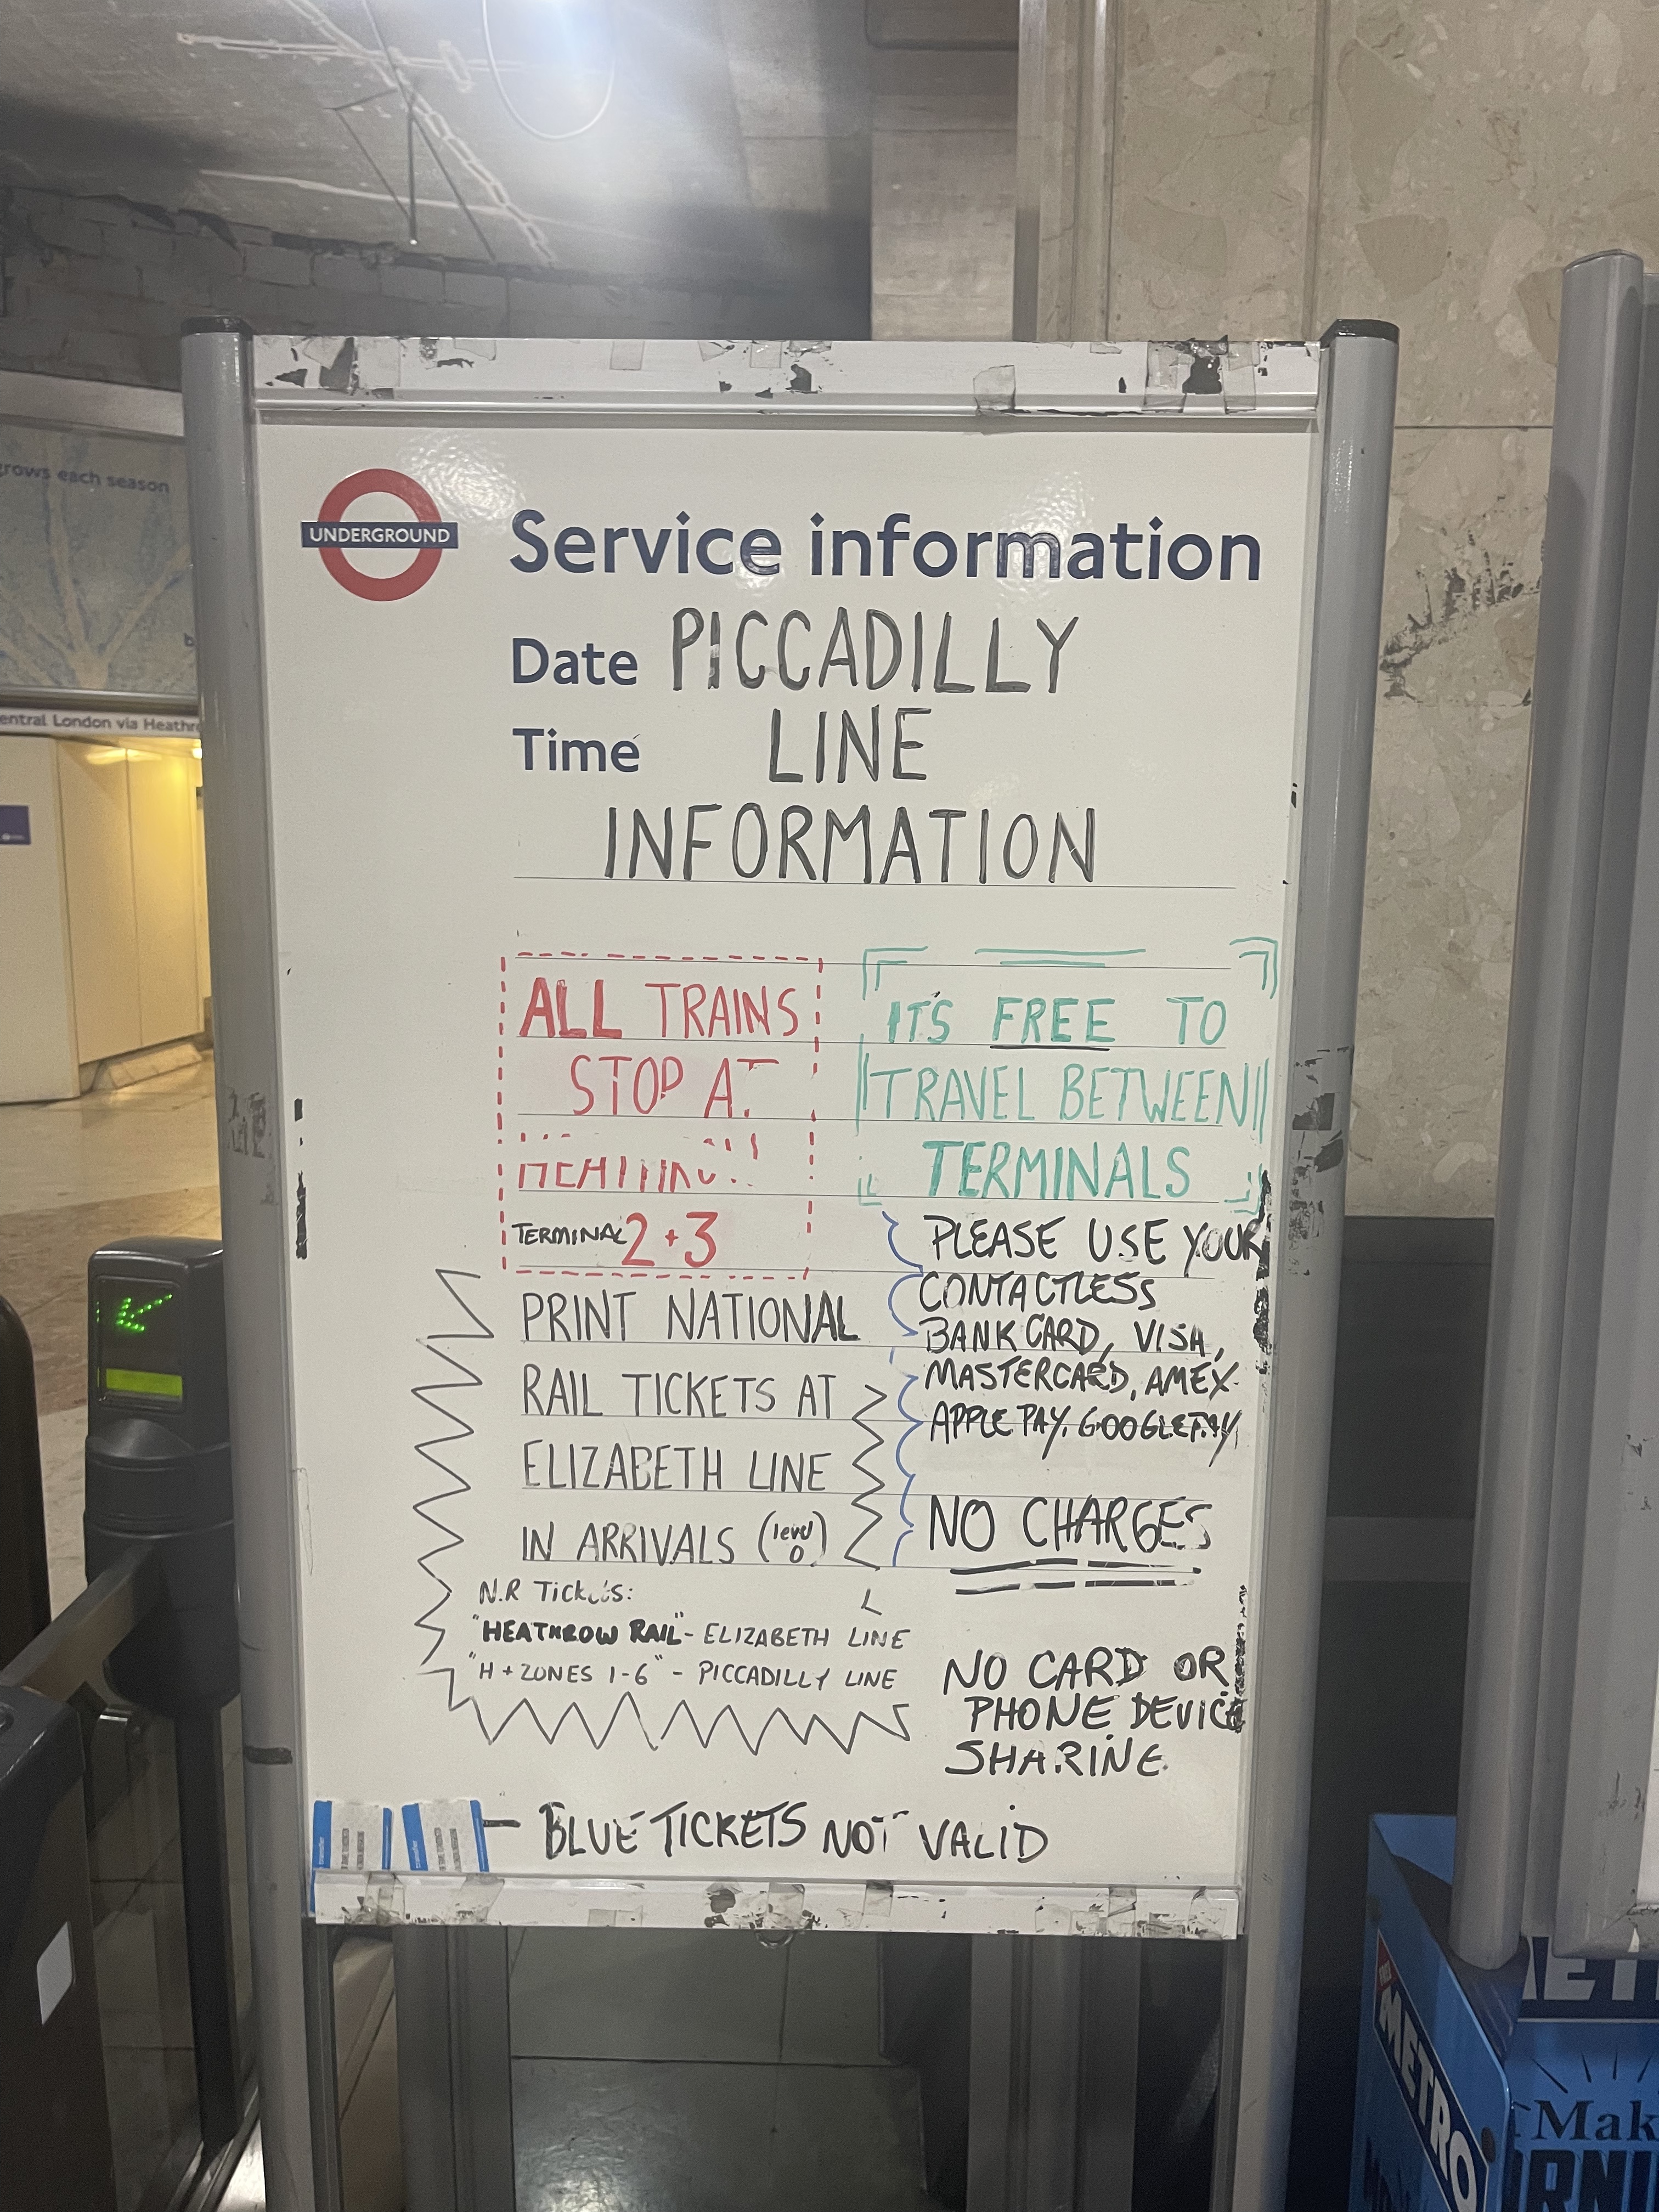 grows each season
entral London via Heathr
UNDERGROUND
Service information
Date PICCADILLY
Time LINE
INFORMATION
ALL TRAINS
STOP AT
TERMINAL 2+3
IT'S FREE TO
TRAVEL BETWEEN
TERMINALS
PRINT NATIONAL
RAIL TICKETS AT
ELIZABETH LINE
IN ARRIVALS (level 0)
N.R Tickets:
"HEATHROW RAIL" - ELIZABETH LINE
"H + ZONES 1-6" - PICCADILLY LINE
PLEASE USE YOUR
CONTACTLESS
BANK CARD, VISA,
MASTERCARD, AMEX
APPLE PAY. GOOGLE PAY
NO CHARGES
NO CARD OR
PHONE DEVICE
SHARINE.
- BLUE TICKETS NOT VALID
METRO
FREE
METRO
Mak